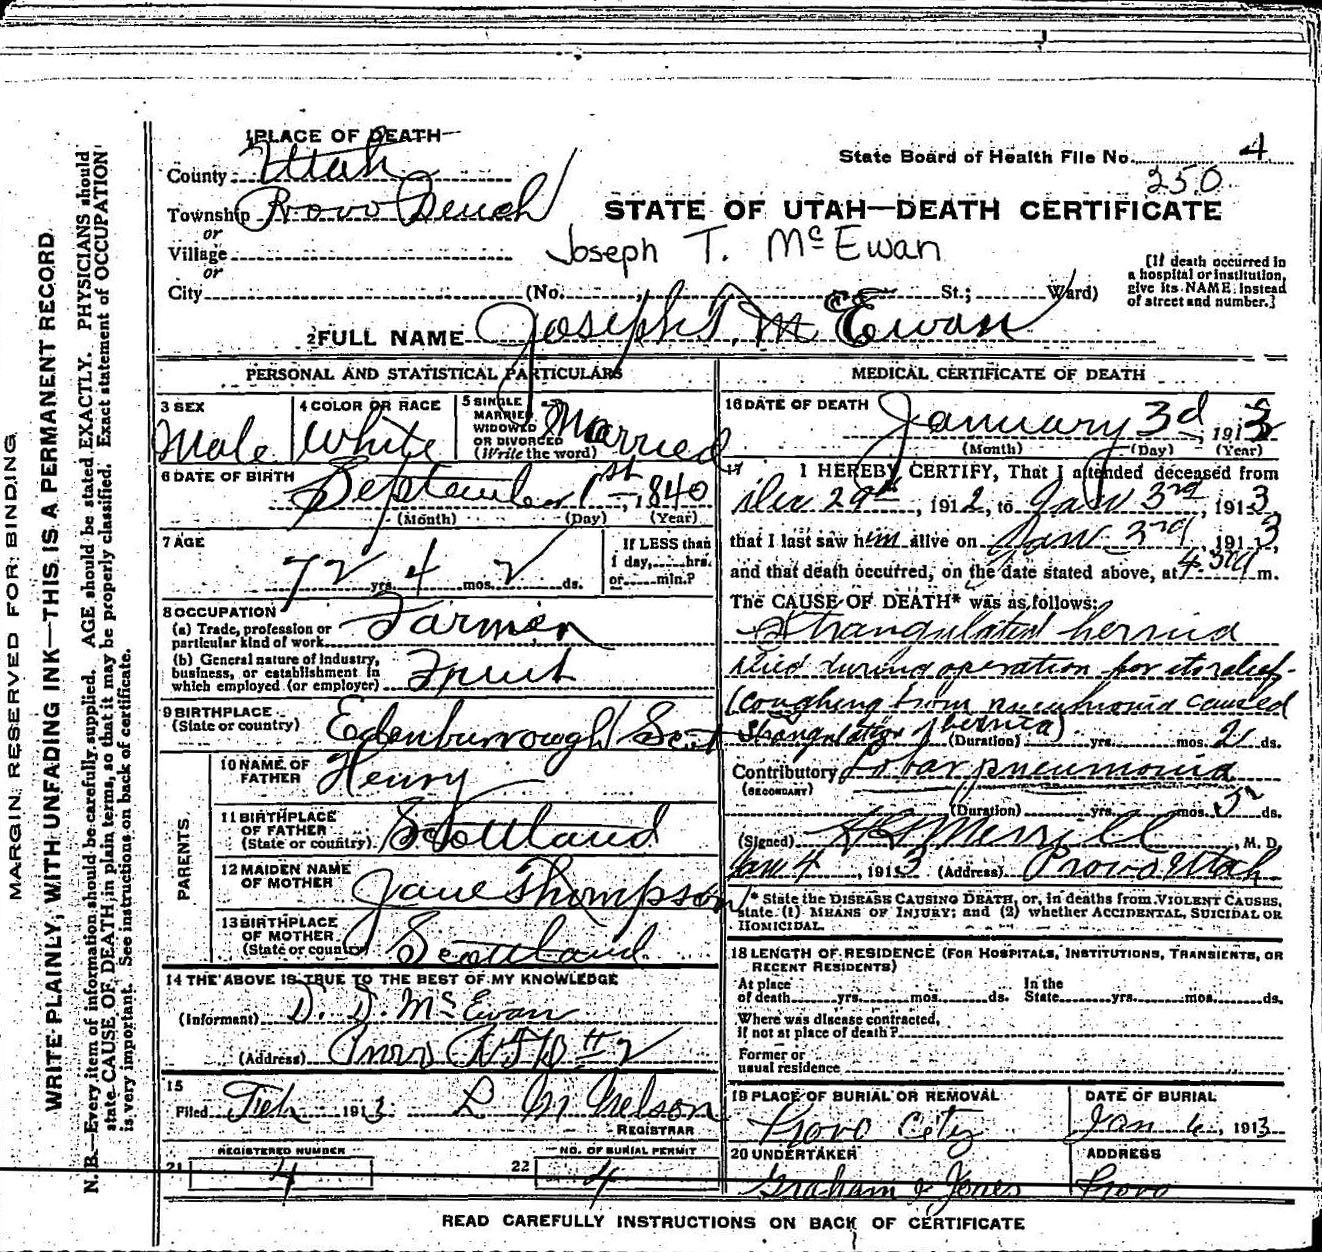 1 PLACE OF DEATH
County Utah
Township Provo Bench
or
Village
or
City
(No. St.; Ward)
State Board of Health File No. 4
250
STATE OF UTAH—DEATH CERTIFICATE
Joseph T. McEwan
[If death occurred in
a hospital or institution,
give its NAME instead
of street and number.]
2 FULL NAME Joseph T. McEwan
PERSONAL AND STATISTICAL PARTICULARS
3 SEX
Male
4 COLOR OR RACE
White
5 SINGLE
MARRIED
WIDOWED
OR DIVORCED
(Write the word)
Married
6 DATE OF BIRTH
September 1st, 1840
(Month) (Day) (Year)
7 AGE
72 yrs. 4 mos. 2 ds.
If LESS than
1 day, hrs.
or min.?
8 OCCUPATION
(a) Trade, profession or
particular kind of work Farmer
(b) General nature of industry,
business, or establishment in
which employed (or employer) Fruit
9 BIRTHPLACE
(State or country) Edenburrough Scot
PARENTS
10 NAME OF
FATHER Henry
11 BIRTHPLACE
OF FATHER
(State or country) Scottland
12 MAIDEN NAME
OF MOTHER Jane Thompson
13 BIRTHPLACE
OF MOTHER
(State or country) Scottland
14 THE ABOVE IS TRUE TO THE BEST OF MY KNOWLEDGE
(Informant) D. D. McEwan
(Address) Provo RFD # 2
15
Filed Feb 1913 L M Nelson
REGISTRAR
REGISTERED NUMBER
21 4
NO. OF BURIAL PERMIT
22 4
MEDICAL CERTIFICATE OF DEATH
16 DATE OF DEATH January 3d, 1913
(Month) (Day) (Year)
17 I HEREBY CERTIFY, That I attended deceased from
Dec 29th, 1912, to Jan 3rd, 1913
that I last saw him alive on Jan 3rd, 1913,
and that death occurred, on the date stated above, at 4:30 m.
The CAUSE OF DEATH* was as follows:
Strangulated hernia
died during operation for its relief.
(Coughing from pneumonia caused
Strangulation of hernia).
(Duration) yrs. mos. 2 ds.
Contributory Lobar pneumonia
(SECONDARY)
(Duration) yrs. mos. 5 ds.
(Signed) Merrill, M. D.
Jan 4, 1913 (Address) Provo Utah
* State the DISEASE CAUSING DEATH, or, in deaths from VIOLENT CAUSES,
state (1) MEANS OF INJURY; and (2) whether ACCIDENTAL, SUICIDAL OR
HOMICIDAL.
18 LENGTH OF RESIDENCE (FOR HOSPITALS, INSTITUTIONS, TRANSIENTS, OR
RECENT RESIDENTS)
At place In the
of death yrs. mos. ds. State yrs. mos. ds.
Where was disease contracted,
if not at place of death?
Former or
usual residence
19 PLACE OF BURIAL OR REMOVAL
Provo City
DATE OF BURIAL
Jan 6, 1913
20 UNDERTAKER
Graham & Jones
ADDRESS
Provo
READ CAREFULLY INSTRUCTIONS ON BACK OF CERTIFICATE
MARGIN RESERVED FOR BINDING
WRITE PLAINLY, WITH UNFADING INK—THIS IS A PERMANENT RECORD
N. B.—Every item of information should be carefully supplied. AGE should be stated EXACTLY. PHYSICIANS should
state CAUSE OF DEATH in plain terms, so that it may be properly classified. Exact statement of OCCUPATION
is very important. See instructions on back of certificate.